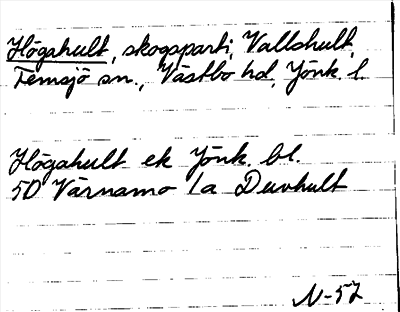 Högahult, skogsparti, Vallshult,
Femsjö sn., Västbo hd, Jönk. l.
Högahult ek Jönk. bl.
50 Värnamo 1a Duvhult
N-57